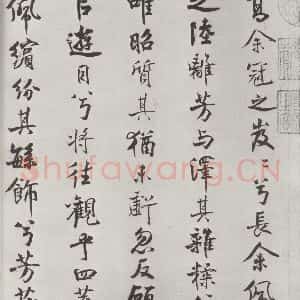 高余冠之岌〻兮長余佩
之陸離芳与澤其雜糅
唯昭質其猶未虧忽反顧
遊目兮將往觀乎四荒
佩繽紛其繁飾兮芳菲
Shufawang.CN